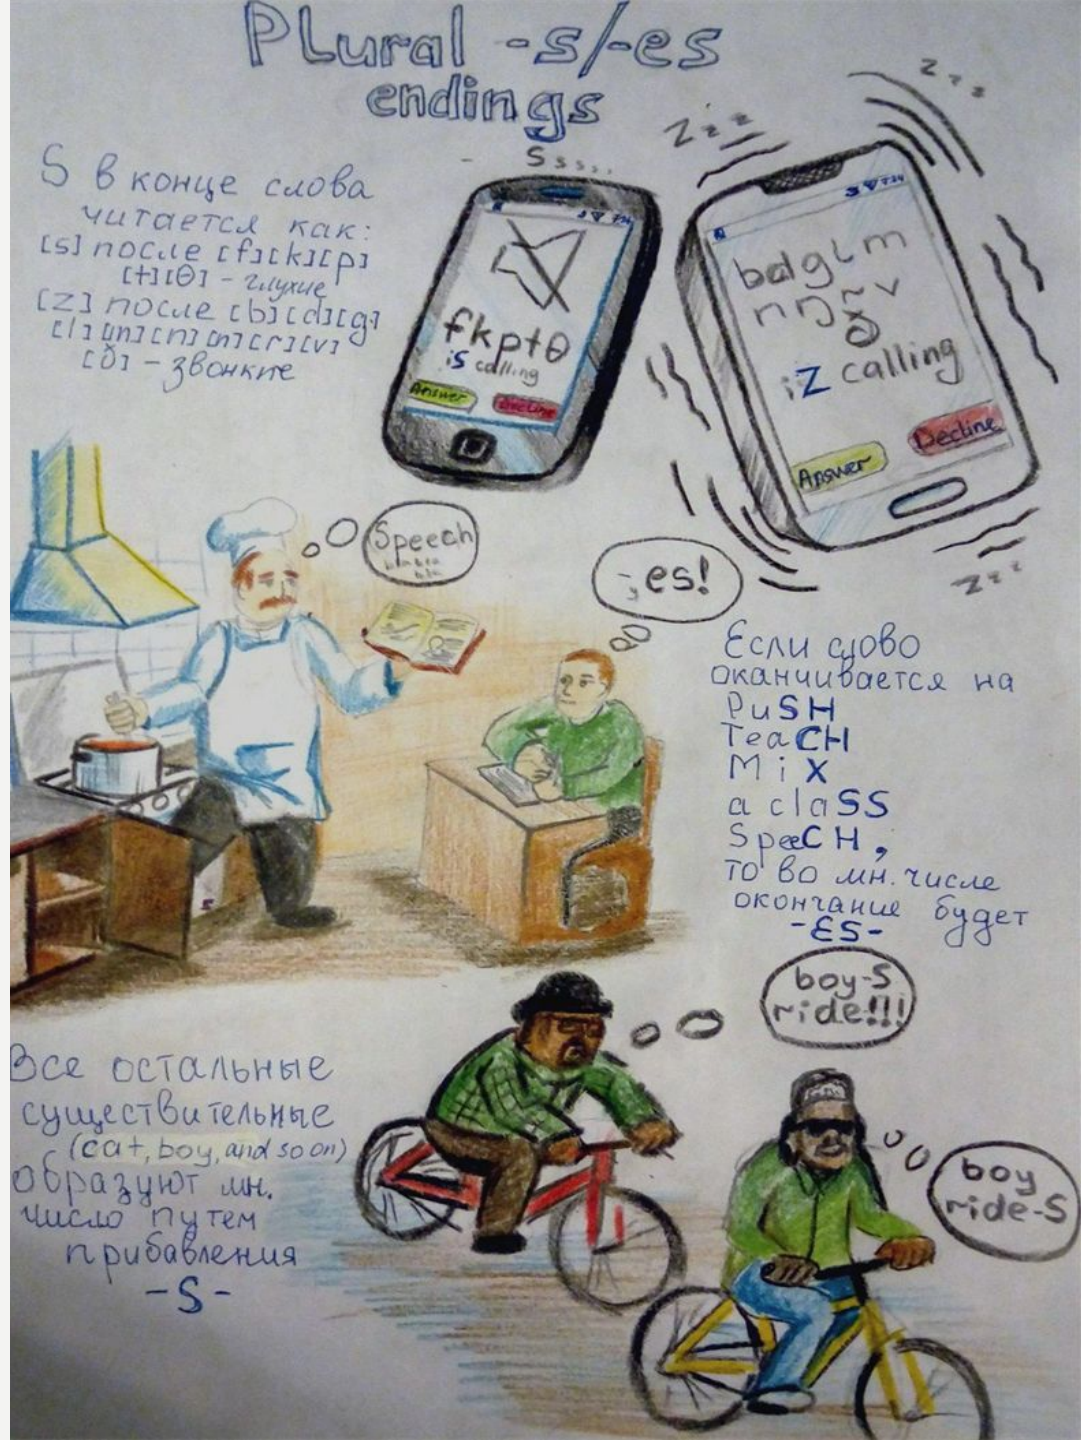 Plural -s/-es
endings
S в конце слова
читается как:
[s] после [f][k][p]
[t][θ] - глухие
[z] после [b][d][g]
[l][m][n][ŋ][r][v]
[ð] - звонкие
Sssss....
fkptθ
is calling
Answer
Decline
Zzz
zzz
bdglm
nŋrv
ð
iZ calling
Answer
Decline
zzz
Speech
bla bla
bla
-es!
Если слово
оканчивается на
PuSH
TeaCH
MiX
a claSS
SpeeCH,
то во мн. числе
окончание будет
-ES-
Все остальные
существительные
(cat, boy, and so on)
образуют мн.
число путем
прибавления
-S-
boy-S
ride!!!
boy
ride-S